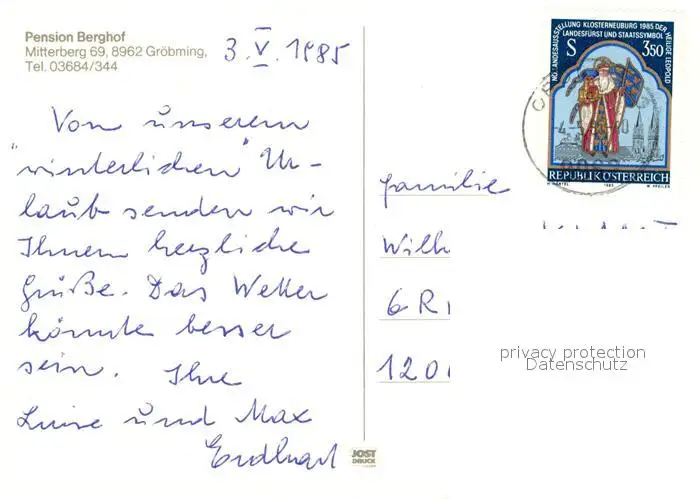 Pension Berghof
Mitterberg 69, 8962 Gröbming,
Tel. 03684/344
3. V. 1985
Von unserem
"winterlichen" Ur-
laub senden wir
Ihnen herzliche
Grüße. Das Wetter
könnte besser
sein. Ihre
Luise und Max
NÖ. LANDESAUSSTELLUNG KLOSTERNEUBURG 1985 DER HEILIGE LEOPOLD
LANDESFÜRST UND STAATSSYMBOL
S 3.50
REPUBLIK ÖSTERREICH
1985
Familie
Wilh
6 R
120
privacy protection
Datenschutz
JOST
DRUCK